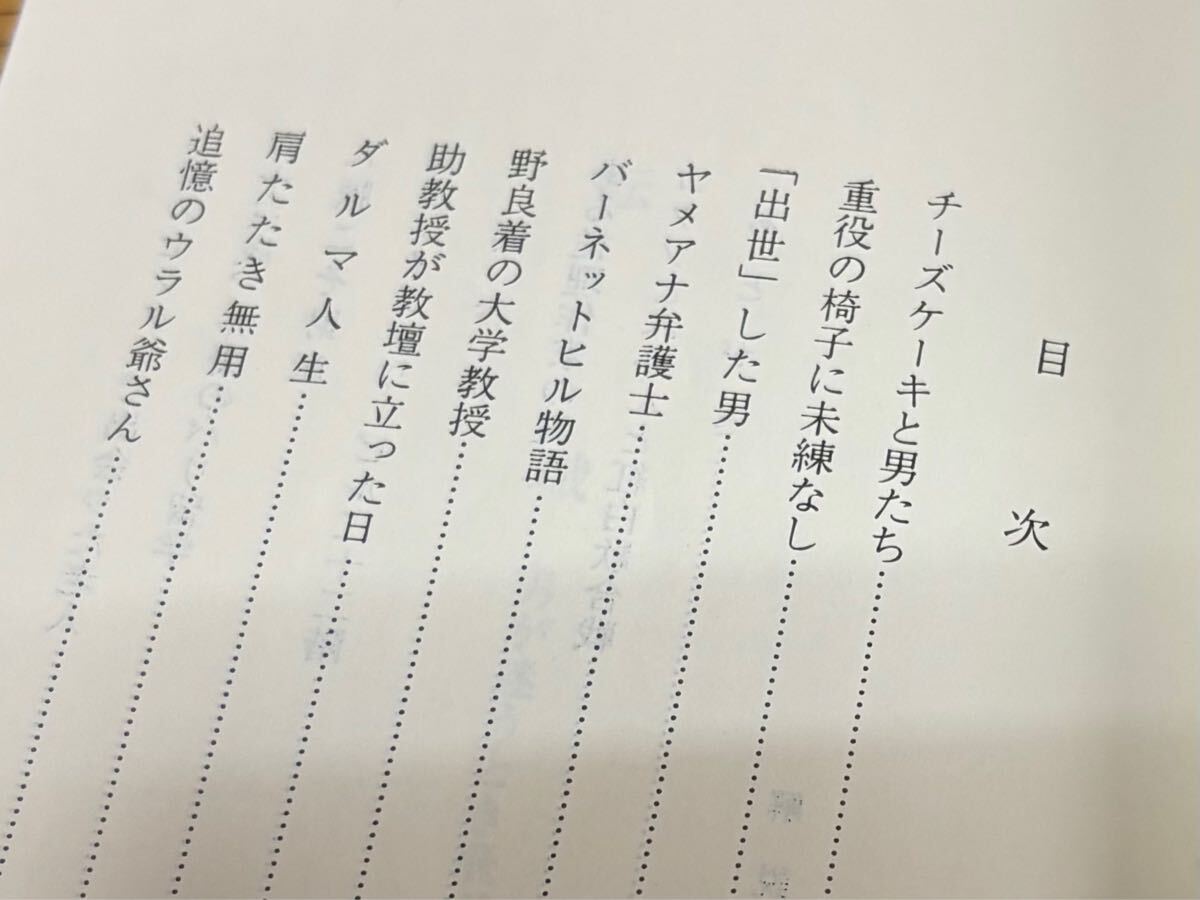 目次
チーズケーキと男たち
重役の椅子に未練なし
「出世」した男
ヤメアナ弁護士
バーネットヒル物語
野良着の大学教授
助教授が教壇に立った日
ダルマ人生
肩たたき無用
追憶のウラル爺さん